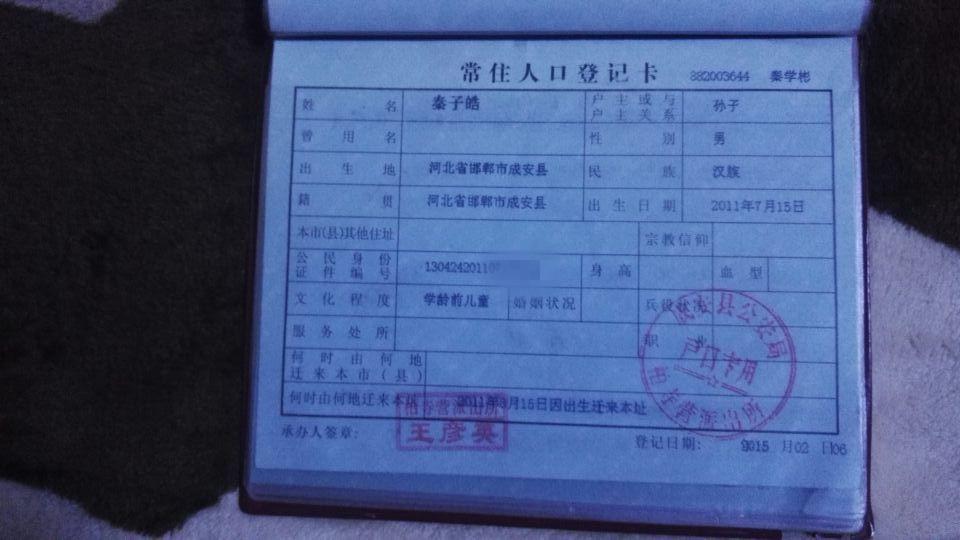 常住人口登记卡 882003644 秦学彬
姓名 秦子皓 户主或与户主关系 孙子
曾用名 性别 男
出生地 河北省邯郸市成安县 民族 汉族
籍贯 河北省邯郸市成安县 出生日期 2011年7月15日
本市(县)其他住址 宗教信仰
公民身份证件编号 1304242011 身高 血型
文化程度 学龄前儿童 婚姻状况 兵役状况
服务处所 职
何时由何地迁来本市(县)
何时由何地迁来本址 2011年8月15日因出生迁来本址
承办人签章: 登记日期: 2015 月02 日06
成安县公安局
户口专用
营派出所
营派出所
王彦英